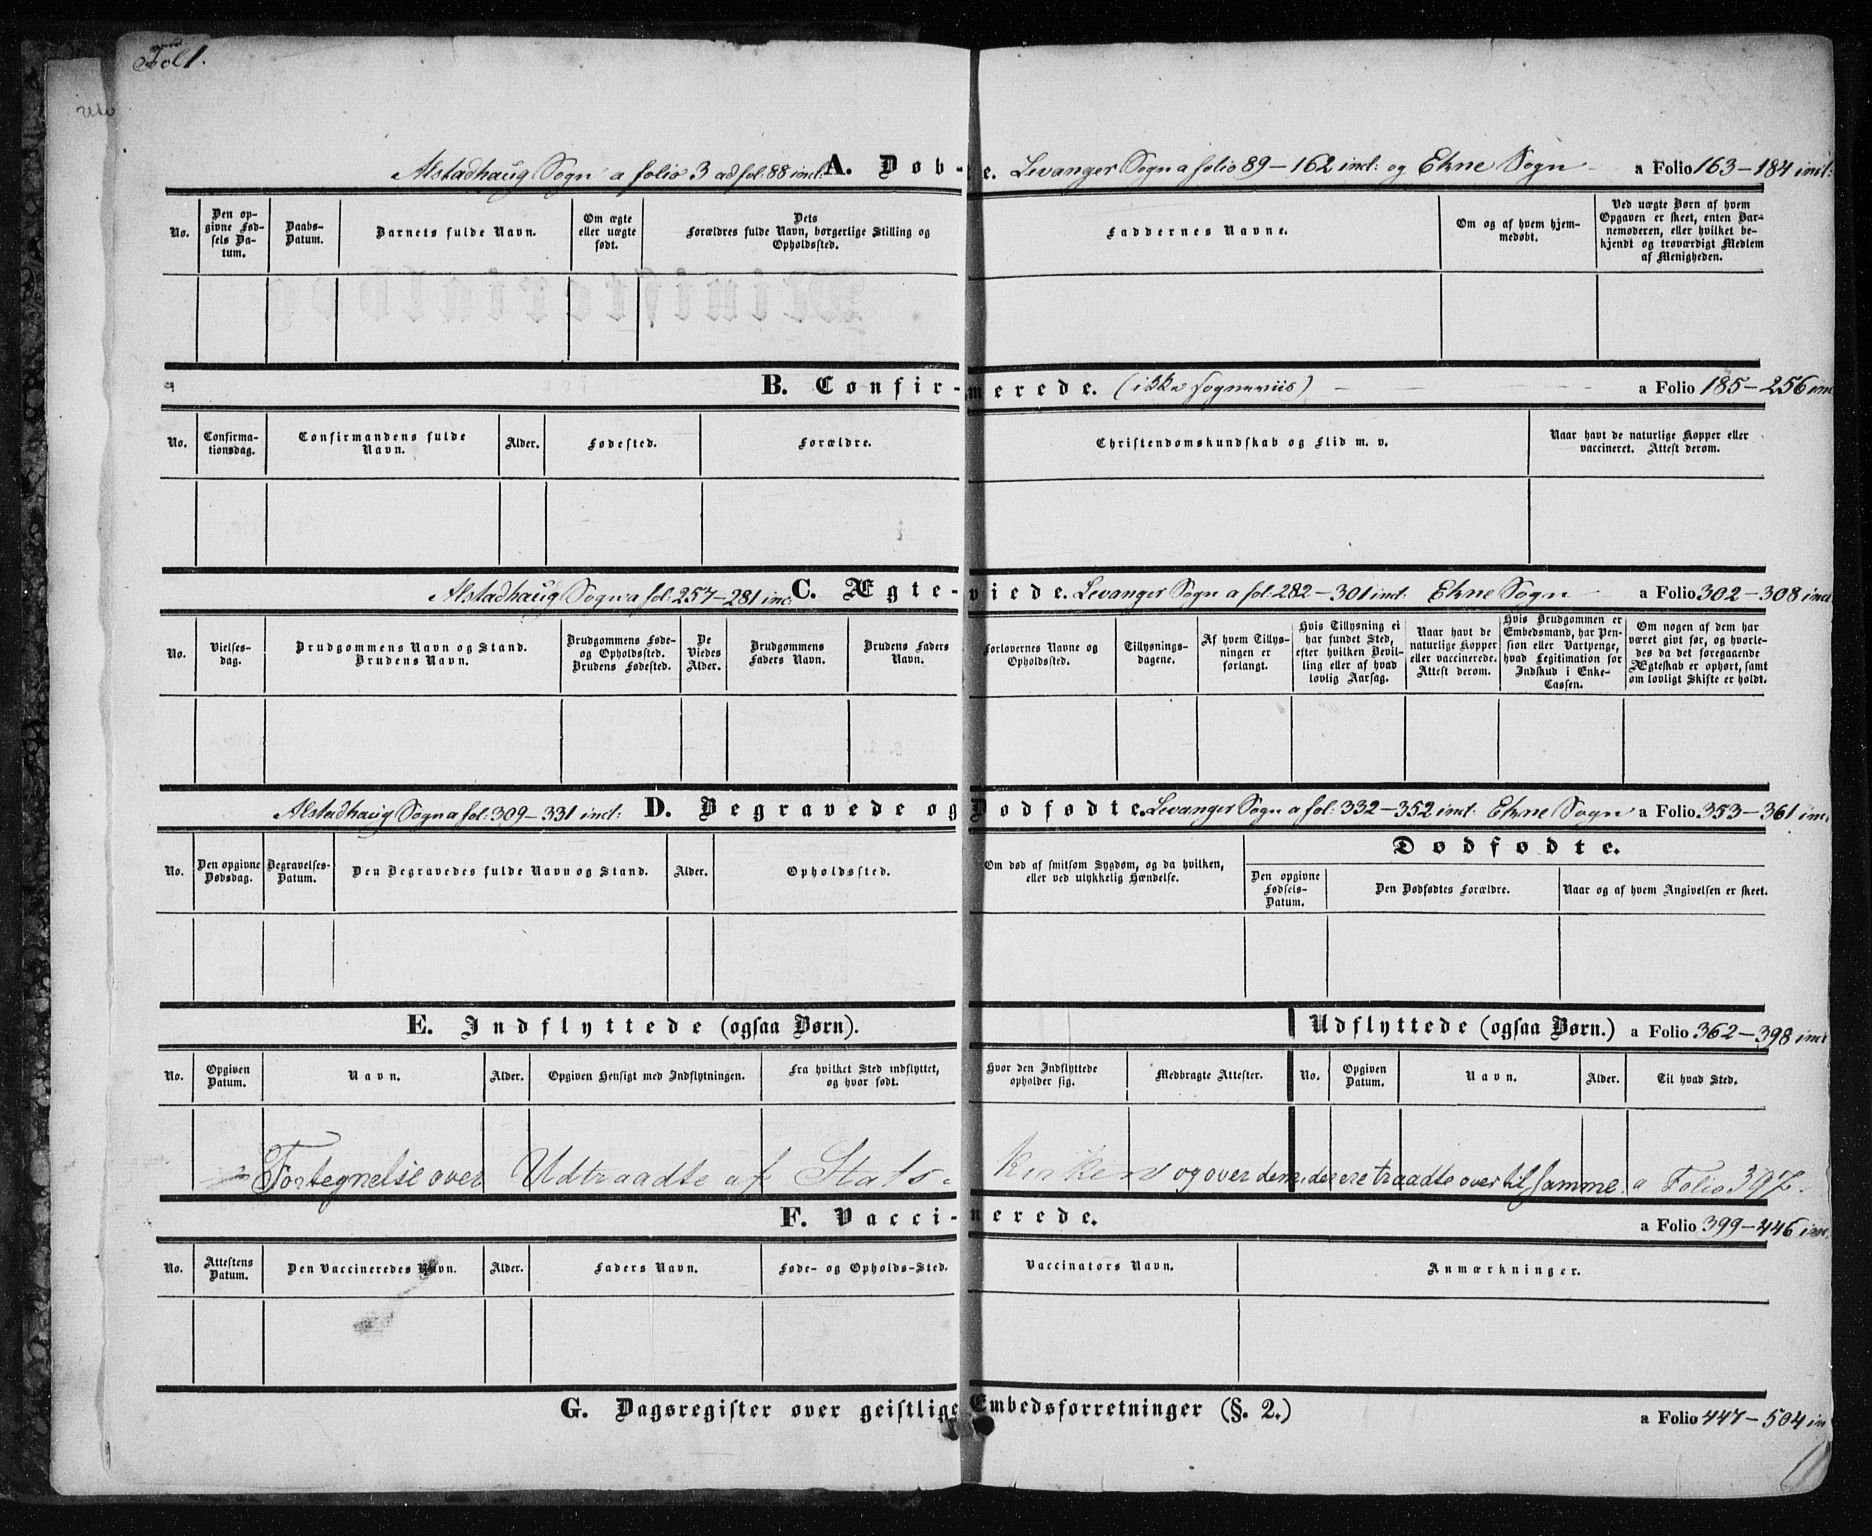 Fol 1.
Alstadhaug Sogn a folio 3 ad fol: 88 incl: A. Døb-te. Levanger Sogn a folio 89-162 incl: og Ekne Sogn - a Folio 163-184 incl:
No. | Den opgivne Fødsels Datum. | Daabs-Datum. | Barnets fulde Navn. | Om ægte eller uægte født. | Dets Forældres fulde Navn, borgerlige Stilling og Opholdssted. | Faddernes Navne. | Om og af hvem hjemmedøbt. | Ved uægte Børn af hvem Opgaven er skeet, enten Barnemoderen, eller hvilket bekjendt og troværdigt Medlem af Menigheden.
B. Confir-merede. (ikke sogneviis) - - - a Folio 185-256 in
No. | Confirmationsdag. | Confirmandens fulde Navn. | Alder. | Fødested. | Forældre. | Christendomskundskab og Flid m. v. | Naar havt de naturlige Kopper eller vaccineret. Attest derom.
Alstadhaug Sogn a fol: 257-281 inc: C. Ægte-viede. Levanger Sogn a fol: 282-301 incl. Ekne Sogn - a Folio 302-308 incl
No. | Vielses-dag. | Brudgommens Navn og Stand. Brudens Navn. | Brudgommens Føde- og Opholdssted. Brudens Fødested. | De Viedes Alder. | Brudgommens Faders Navn. | Brudens Faders Navn. | Forlovernes Navne og Opholdssted. | Tillysnings-dagene. | Af hvem Tillysningen er forlangt. | Hvis Tillysning ei har fundet Sted, efter hvilken Bevilling eller af hvad lovlig Aarsag. | Naar havt de naturlige Kopper eller vaccinerede. Attest derom. | Hvis Brudgommen er Embedsmand, har Pension eller Vartpenge, hvad Legitimation for Indskud i Enke-Cassen. | Om nogen af dem har været gift før, og hvorledes da det foregaaende Ægteskab er ophørt, samt om lovligt Skifte er holdt.
Alstadhaug Sogn a fol: 309-331 incl: D. Begravede og Dødfødte. Levanger Sogn a fol: 332-352 incl: Ekne Sogn a Folio 353-361 inc
Dødfødte.
No. | Den opgivne Dødsdag. | Begravelses-Datum. | Den Begravedes fulde Navn og Stand. | Alder. | Opholdssted. | Om død af smitsom Sygdom, og da hvilken, eller ved ulykkelig Hændelse. | Den opgivne Fødsels-Datum. | Den Dødfødtes Forældre. | Naar og af hvem Angivelsen er skeet.
E. Indflyttede (ogsaa Børn). Udflyttede (ogsaa Børn.) a Folio 362-398 incl
No. | Opgiven Datum. | Navn. | Alder. | Opgiven Hensigt med Indflytningen. | Fra hvilket Sted indflyttet, og hvor født. | Hvor den Indflyttede opholder sig. | Medbragte Attester. | No. | Opgiven Datum. | Navn. | Alder. | Til hvad Sted.
Fortegnelse over Udtraadte af Stats-kirken og over dem, der ere traadte over til samme a Folio 397.
F. Vacci-nerede. a Folio 399-446 in
No. | Attestens Datum. | Den Vaccineredes Navn. | Alder. | Faders Navn. | Føde- og Opholds-Sted. | Vaccinators Navn. | Anmærkninger.
G. Dagsregister over geistlige Embedsforretninger (§. 2.) a Folio 447-504 in